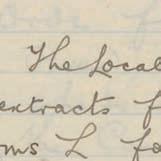 The Local
extracts f
ms L fo